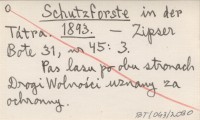 Schutzforste in der
Tatra. 1893. — Zipser
Bote 31, nr 45: 3.
Pas lasu po obu stronach
Drogi Wolności uznany za
ochronny.